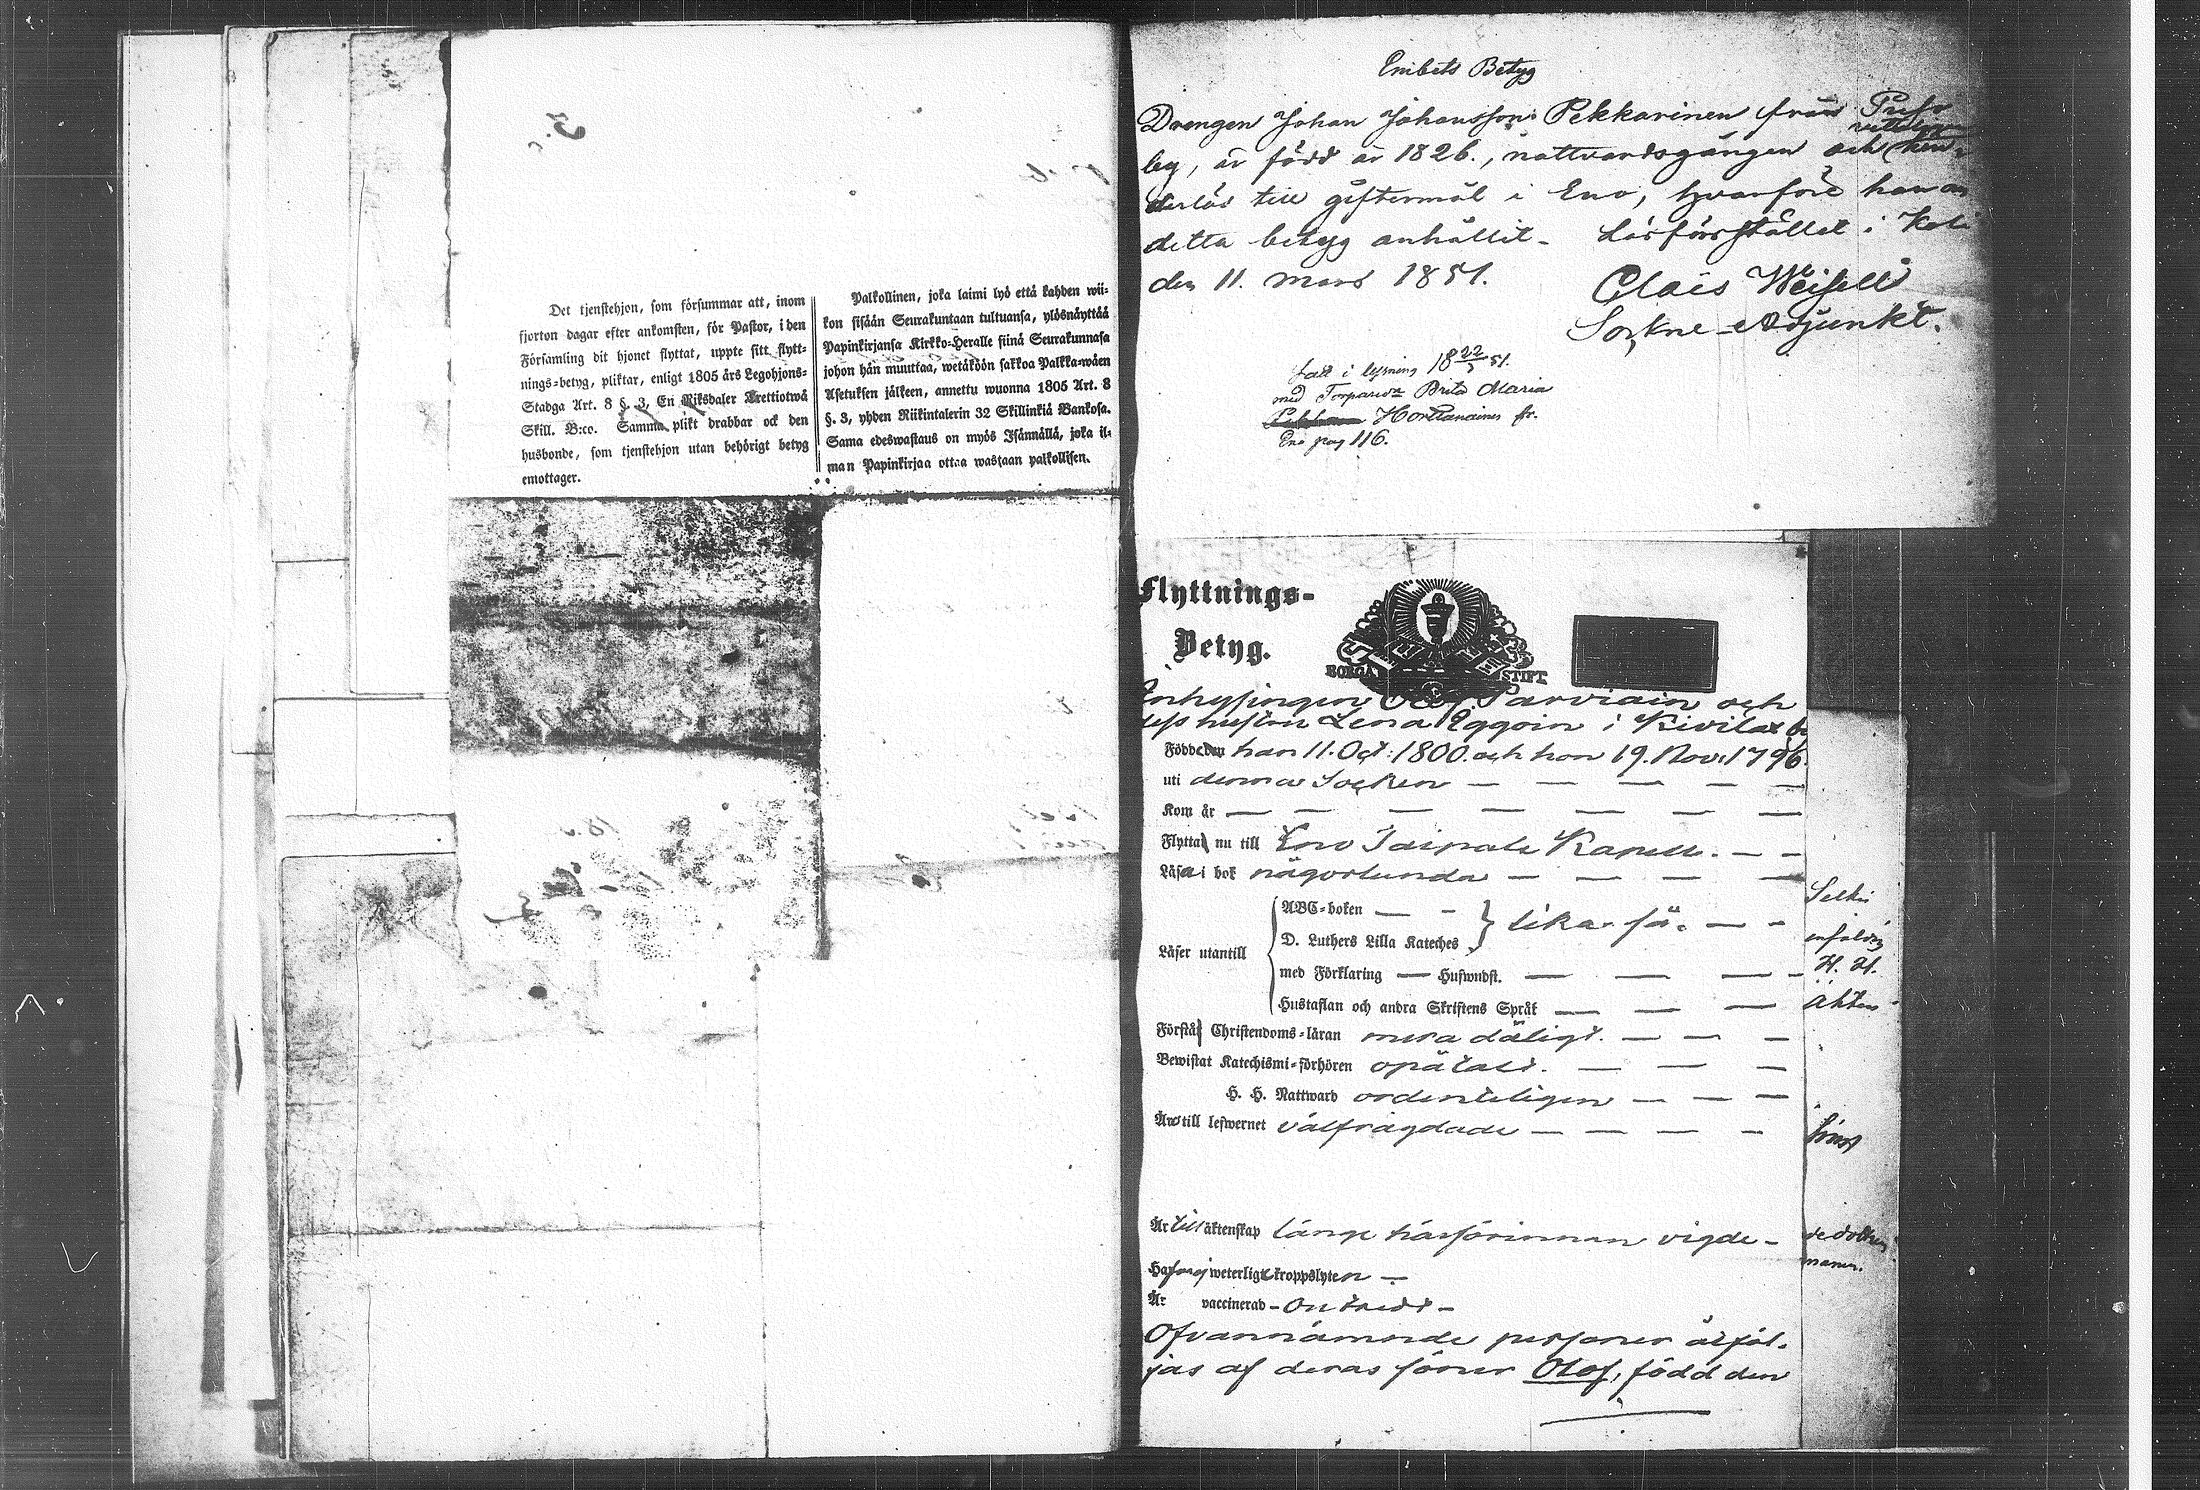 Det tjenstehjon, som försummar att, inom
fjorton dagar efter ankomsten, för Pastor, i den
Församling dit hjonet flyttat, uppte sitt flytt-
nings-betyg, pliktar, enligt 1805 års Legohjons-
Stadga Art. 8 §. 3, En Riksdaler Trettiotwå
Skill. B:co. Samma plikt drabbar ock den
husbonde, som tjenstehjon utan behörigt betyg
emottager.
Palkollinen, joka laimi lyö että kahden wii-
kon sisään Seurakuntaan tultuansa, ylösnäyttää
Papinkirjansa Kirkko-Heralle siinä Seurakunnasa
johon hän muuttaa, wetäköön sakkoa Palkka-wäen
Asetuksen jälkeen, annettu wuonna 1805 Art. 8
§. 3, yhden Riikintalerin 32 Skillinkiä Bankosa.
Sama edeswastaus on myös Isännällä, joka il-
man Papinkirjaa ottaa wastaan palkollisen.
Enibets Betyg
Drengen Johan Johansson Pekkarinen från
by, är född år 1826., nattvardsgången och hin-
derlös till giftermål i Eno, hvarföre han om
detta betyg anhållit. Läsförstället i Koli
den 11. Mars 1851.
Claës Weisell
Sockne-Adjunkt.
1822/3 51.
med Torparedr Brita Maria
Hortlanainen fr.
Eno pag 116.
Flyttnings-
Betyg.
BORGÅ STIFT
Inhysingen Olof Parviain och
dess hustru Lena Eggoin i Kivilax by
Födde den han 11. Oct: 1800. och hon 19. Nov: 1796.
uti denna Socken
Kom år
Flytta nu till Eno Taipale Kapell.
Läsa i bok någorlunda
Läser utantill
ABC-boken
D. Luthers Lilla Kateches
lika så.
med Förklaring Hufwudst.
Hustaflan och andra Skriftens Språk
Förstå Christendoms-läran mera dåligt.
Bewistat Katechismi-förhören opåtalt.
H. H. Nattward ordenteligen
Äro till lefwernet välfrägdade
Är till äktenskap länge härförinnan vigde
Hafwa ej weterligt kroppslyten
Är vaccinerad
Ofvannämnde personer åtföl-
jas af deras söner Olof, född den
Selki
H. H.
Äkten